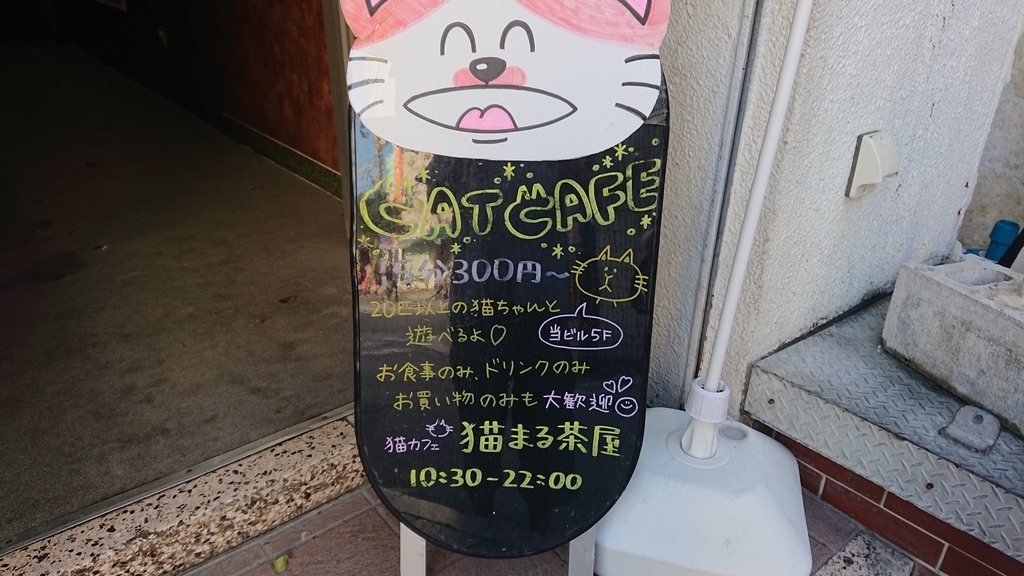 CAT CAFE
15分300円～
20匹以上の猫ちゃんと
遊べるよ♡
当ビル5F
お食事のみ、ドリンクのみ
お買い物のみも大歓迎
猫カフェ 猫まる茶屋
10:30-22:00